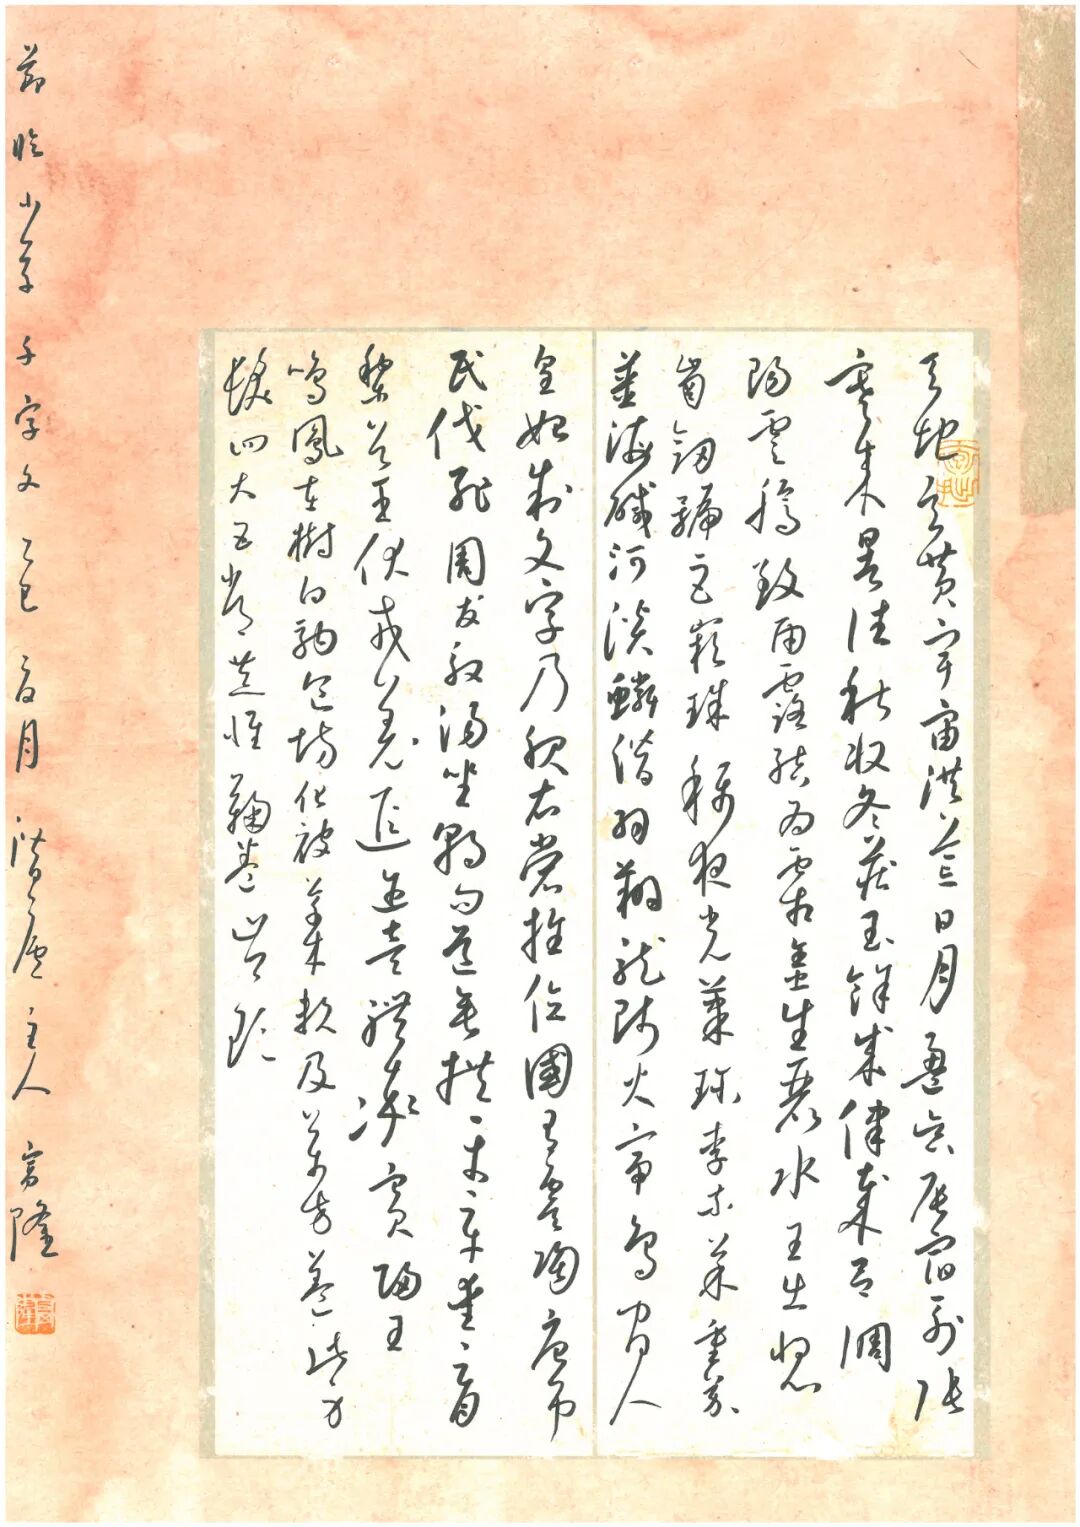 天地玄黃宇宙洪荒日月盈昃辰宿列張
寒來暑往秋收冬藏閏餘成歲律呂調
陽雲騰致雨露結為霜金生麗水玉出崑
崗劍號巨闕珠稱夜光菓珍李柰菜重芥
薑海鹹河淡鱗潛羽翔龍師火帝鳥官人
皇始制文字乃服衣裳推位國有虞陶唐弔
民伐罪周發殷湯坐朝問道垂拱平章愛育
黎首臣伏戎羌遐邇壹體率賓歸王
鳴鳳在樹白駒食場化被草木賴及萬方蓋此身
髮四大五常恭惟鞠養豈敢
節臨小草千字文乙巳月潛廬主人富隆